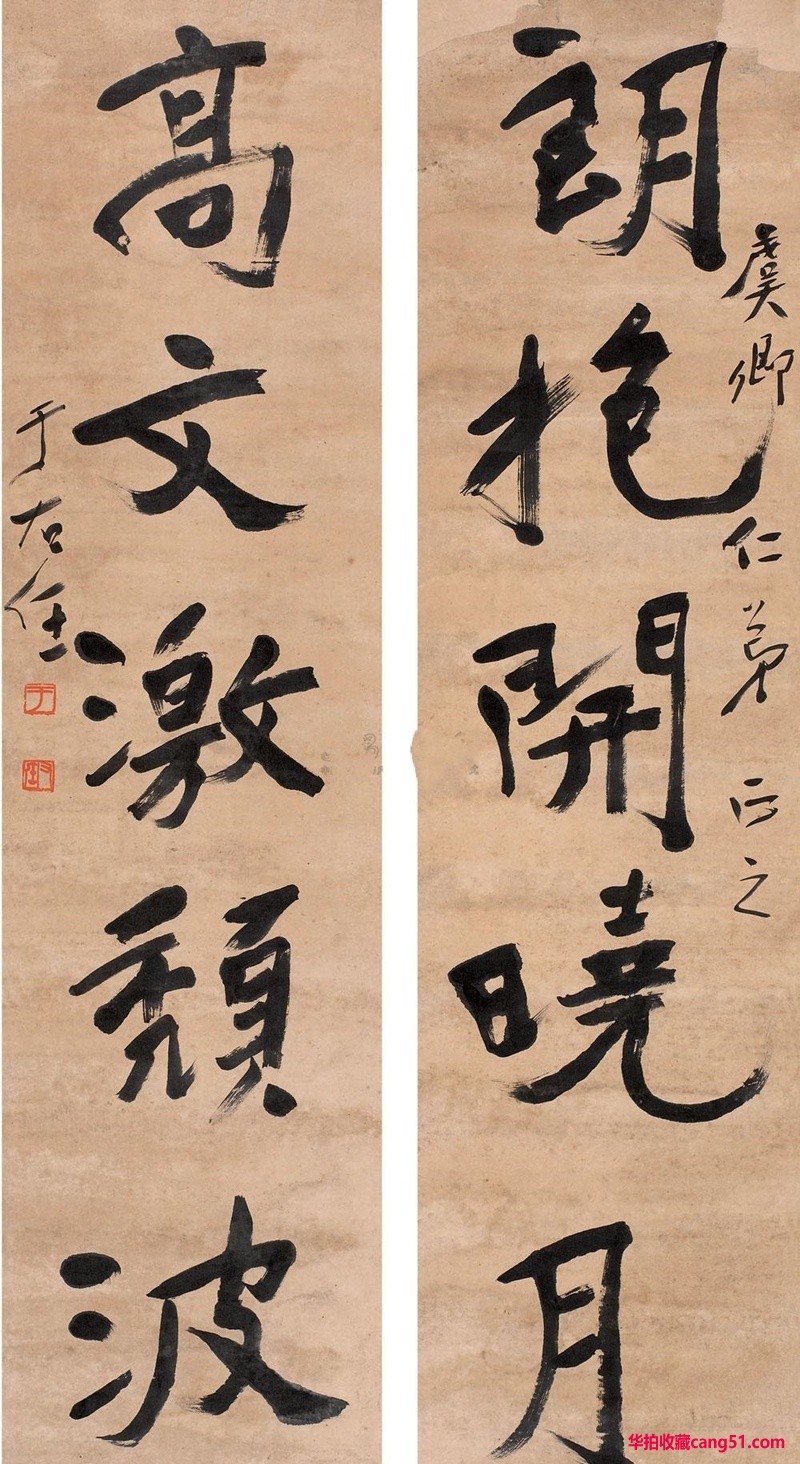 朗抱開曉月
虞卿仁弟正之
高文激頹波
于右任
华拍收藏cang51.com